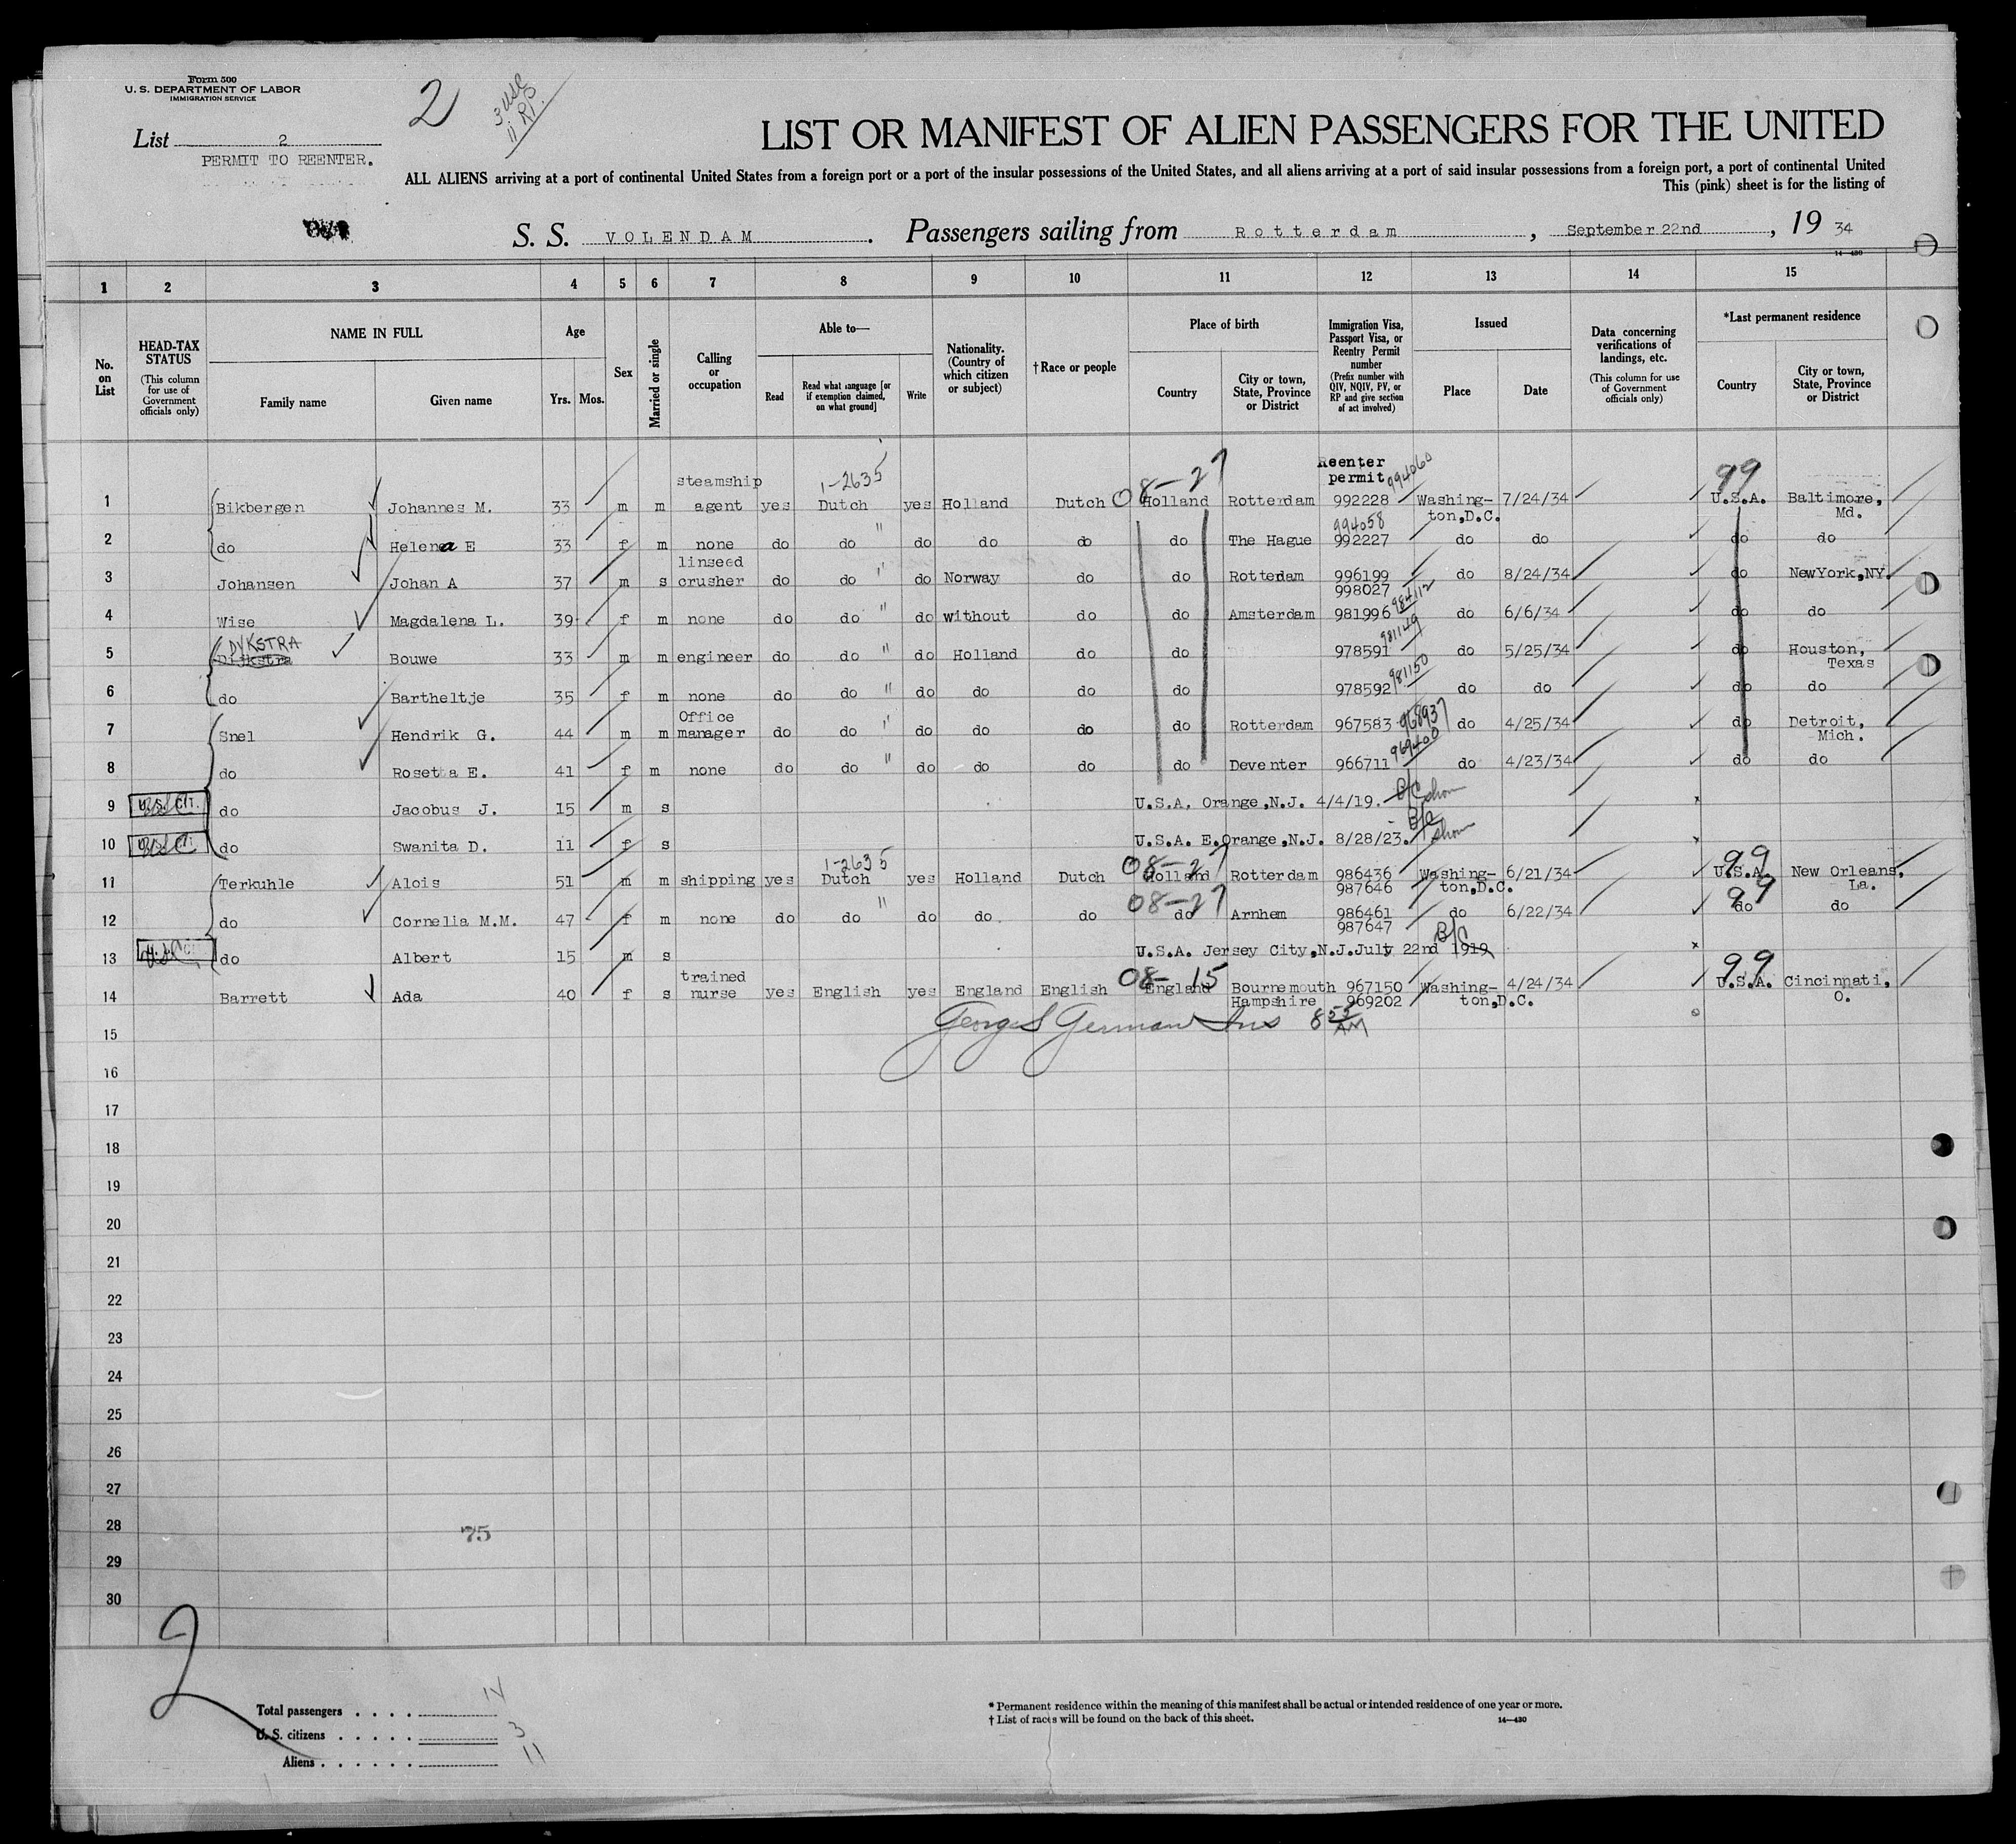 Form 500
U. S. DEPARTMENT OF LABOR
IMMIGRATION SERVICE
2
3 USC
11 RP.
List 2
PERMIT TO REENTER.
LIST OR MANIFEST OF ALIEN PASSENGERS FOR THE UNITED
ALL ALIENS arriving at a port of continental United States from a foreign port or a port of the insular possessions of the United States, and all aliens arriving at a port of said insular possessions from a foreign port, a port of continental United
This (pink) sheet is for the listing of
S. S. VOLENDAM. Passengers sailing from Rotterdam, September 22nd, 19 34
14—430
1 2 3 4 5 6 7 8 9 10 11 12 13 14 15
No. on List
HEAD-TAX STATUS (This column for use of Government officials only)
NAME IN FULL
Family name Given name
Age
Yrs. Mos.
Sex
Married or single
Calling or occupation
Able to—
Read
Read what language [or if exemption claimed, on what ground]
Write
Nationality. (Country of which citizen or subject)
†Race or people
Place of birth
Country
City or town, State, Province or District
Immigration Visa, Passport Visa, or Reentry Permit number (Prefix number with QIV, NQIV, PV, or RP and give section of act involved)
Issued
Place Date
Data concerning verifications of landings, etc. (This column for use of Government officials only)
*Last permanent residence
Country
City or town, State, Province or District
Reenter
permit 994060
steamship 1-2635 08-27 99
1 Bikbergen Johannes M. 33 m m agent yes Dutch yes Holland Dutch Holland Rotterdam 992228 Washing- 7/24/34 U.S.A. Baltimore,
ton,D.C. Md.
994058
2 do Helena E 33 f m none do do " do do do do The Hague 992227 do do do do
linseed
3 Johansen Johan A 37 m s crusher do do " do Norway do do Rotterdam 996199 do 8/24/34 do NewYork,NY.
998027
984112
4 Wise Magdalena L. 39 f m none do do " do without do do Amsterdam 981996 do 6/6/34 do do
DYKSTRA 981149
5 Dijkstra Bouwe 33 m m engineer do do " do Holland do do 978591 do 5/25/34 do Houston,
Texas
981150
6 do Bartheltje 35 f m none do do " do do do do 978592 do do do do
Office
7 Snel Hendrik G. 44 m m manager do do " do do do do Rotterdam 967583 968937 do 4/25/34 do Detroit,
Mich.
969400
8 do Rosetta E. 41 f m none do do " do do do do Deventer 966711 do 4/23/34 do do
9 U.S. CIT. USC do Jacobus J. 15 m s U.S.A. Orange,N.J. 4/4/19. B/C shown
10 USC do Swanita D. 11 f s U.S.A. E.Orange,N.J. 8/28/23. B/C shown
1-2635 08-27 99
11 Terkuhle Alois 51 m m shipping yes Dutch yes Holland Dutch Holland Rotterdam 986436 Washing- 6/21/34 U.S.A. New Orleans,
987646 ton,D.C. La.
08-27 99
12 do Cornelia M.M. 47 f m none do do " do do do do Arnhem 986461 do 6/22/34 do do
987647
13 USC do Albert 15 m s U.S.A. Jersey City,N.J.July 22nd 1919 B/C
trained 08-15 99
14 Barrett Ada 40 f s nurse yes English yes England English England Bournemouth 967150 Washing- 4/24/34 U.S.A. Cincinnati,
Hampshire 969202 ton,D.C. O.
George S German Ins 8 55 AM
15
16
17
18
19
20
21
22
23
24
25
26
27
28
75
29
30
2
Total passengers . . . . 14
U. S. citizens . . . . . 3
Aliens . . . . . . 11
* Permanent residence within the meaning of this manifest shall be actual or intended residence of one year or more.
† List of races will be found on the back of this sheet. 14—430